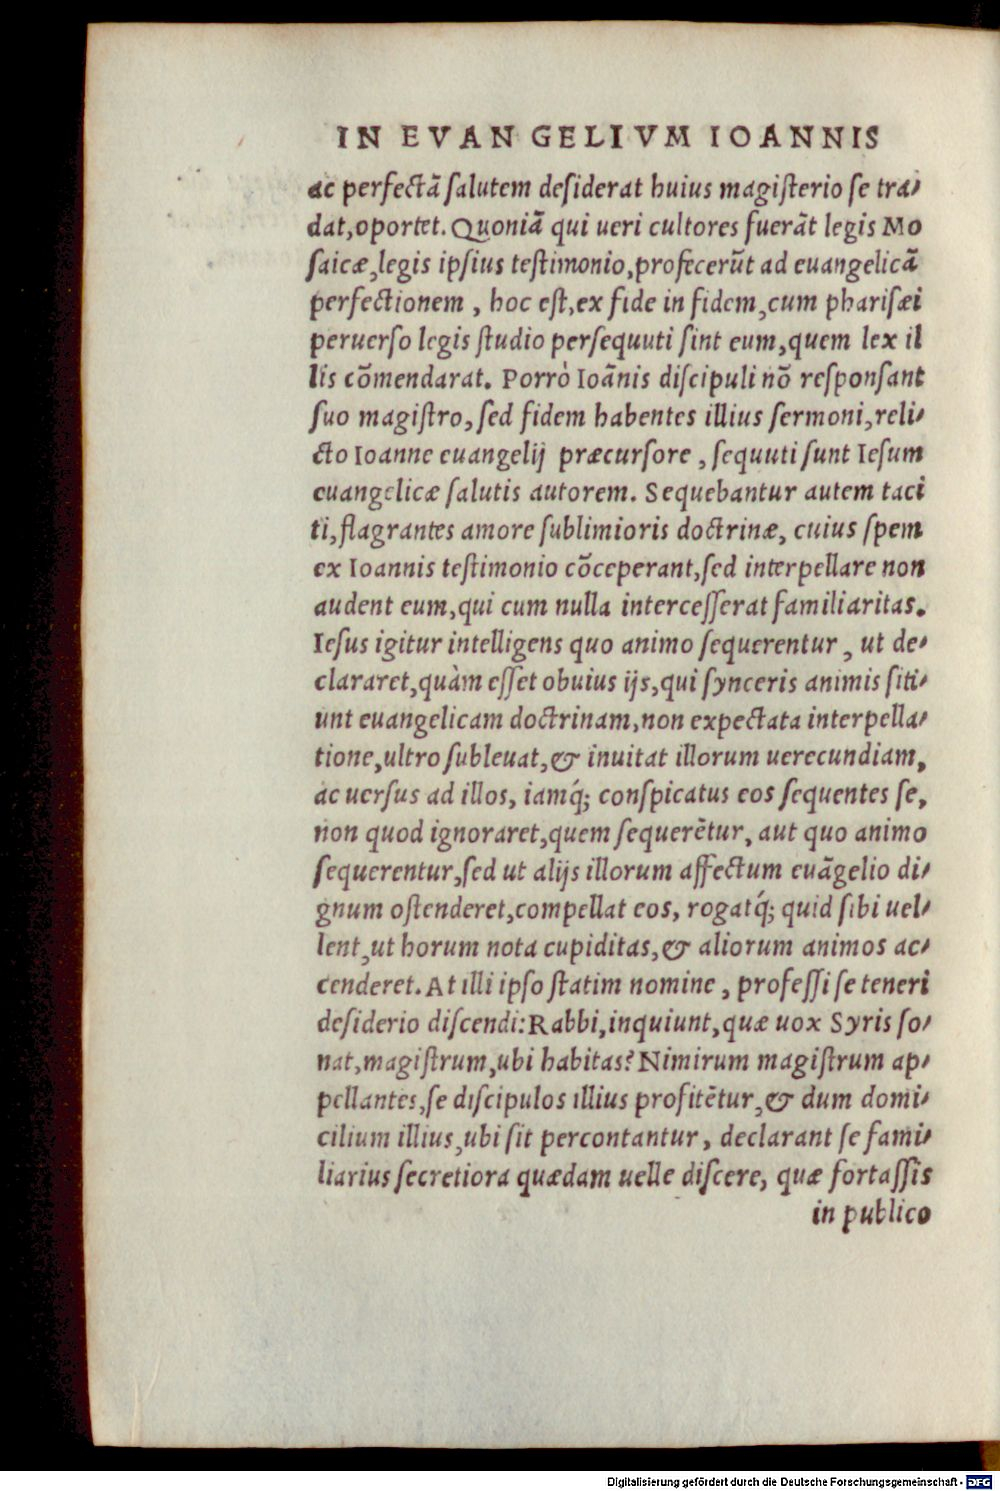 IN EVANGELIVM IOANNIS
ac perfectã ſalutem deſiderat huius magiſterio ſe tra-
dat, oportet. Quoniã qui ueri cultores fuerãt legis Mo
ſaicæ, legis ipſius teſtimonio, profecerũt ad euangelicã
perfectionem, hoc eſt, ex fide in fidem, cum phariſæi
peruerſo legis ſtudio perſequuti ſint eum, quem lex il
lis cõmendarat. Porrò Ioãnis diſcipuli nõ reſponſant
ſuo magiſtro, ſed fidem habentes illius ſermoni, reli-
cto Ioanne euangelij præcurſore, ſequuti ſunt Ieſum
euangelicæ ſalutis autorem. Sequebantur autem taci
ti, flagrantes amore ſublimioris doctrinæ, cuius ſpem
ex Ioannis teſtimonio cõceperant, ſed interpellare non
audent eum, qui cum nulla interceſſerat familiaritas.
Ieſus igitur intelligens quo animo ſequerentur, ut de-
clararet, quàm eſſet obuius ijs, qui ſynceris animis ſiti-
unt euangelicam doctrinam, non expectata interpella-
tione, ultro ſubleuat, & inuitat illorum uerecundiam,
ac uerſus ad illos, iamq́; conſpicatus eos ſequentes ſe,
non quod ignoraret, quem ſequerẽtur, aut quo animo
ſequerentur, ſed ut alijs illorum affectum euãgelio di-
gnum oſtenderet, compellat eos, rogatq́; quid ſibi uel-
lent, ut horum nota cupiditas, & aliorum animos ac-
cenderet. At illi ipſo ſtatim nomine, profeſſi ſe teneri
deſiderio diſcendi: Rabbi, inquiunt, quæ uox Syris ſo-
nat, magiſtrum, ubi habitas? Nimirum magiſtrum ap-
pellantes, ſe diſcipulos illius profitẽtur, & dum domi-
cilium illius, ubi ſit percontantur, declarant ſe fami-
liarius ſecretiora quædam uelle diſcere, quæ fortaſſis
in publico
Digitalisierung gefördert durch die Deutsche Forschungsgemeinschaft - DFG